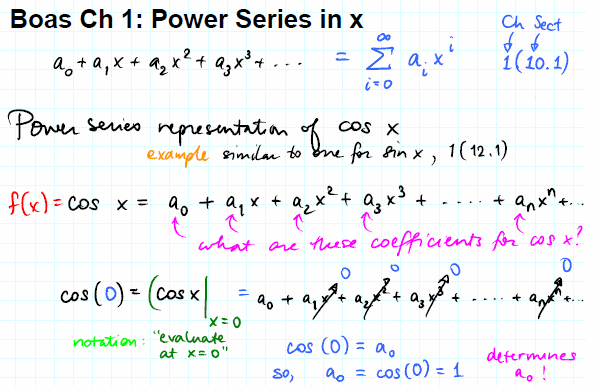 Boas Ch 1: Power Series in x
Ch Sect
a₀ + a₁x + a₂x² + a₃x³ + ... = ∞ Σ i=0 aᵢxⁱ 1(10.1)
Power series representation of cos x
example similar to one for sin x, 1(12.1)
f(x) = cos x = a₀ + a₁x + a₂x² + a₃x³ + ..... + aₙxⁿ + ...
what are these coefficients for cos x?
0 0 0 0
cos(0) = (cos x | x=0 = a₀ + a₁x + a₂x² + a₃x³ + ..... + aₙxⁿ + ...
notation: "evaluate at x=0"
cos(0) = a₀
so, a₀ = cos(0) = 1
determines
a₀!